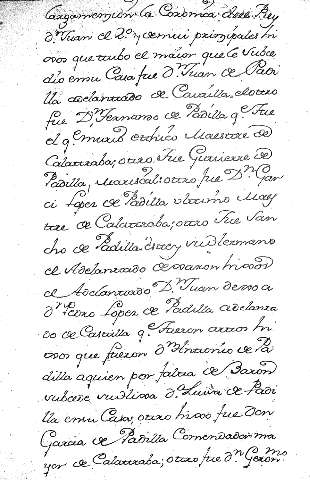 largamente en la Coronica del Rey
D.n Juan el 2.º y demui principales hi
xos que tubo el maior que le subce
dio en su Casa fue D.n Juan de Padi
lla adelantado de Castilla, el otro
fue D.n Fernando de Padilla q.e fue
el q.e murio echo Maestre de
Calatraba; otro fue Gutierre de
Padilla, Mariscal; otro fue D.n Gar
ci Lopez de Padilla ultimo Maes
tre de Calatraba; otro fue San
cho de Padilla este y su hermano
el Adelantado dexaron hixos
el Adelantado D.n Juan dexo a
d.n Pedro Lopez de Padilla adelanta
do de Castilla q.e fueron otros hi
xos que fueron d.n Antonio de Pa
dilla a quien por falta de Baron
subcede su hixa d.ª Luisa de Padi
lla en su Casa, otro hixo fue Don
Garcia de Padilla Comendador ma
yor de Calatraba; otro fue d.n Geron.mo